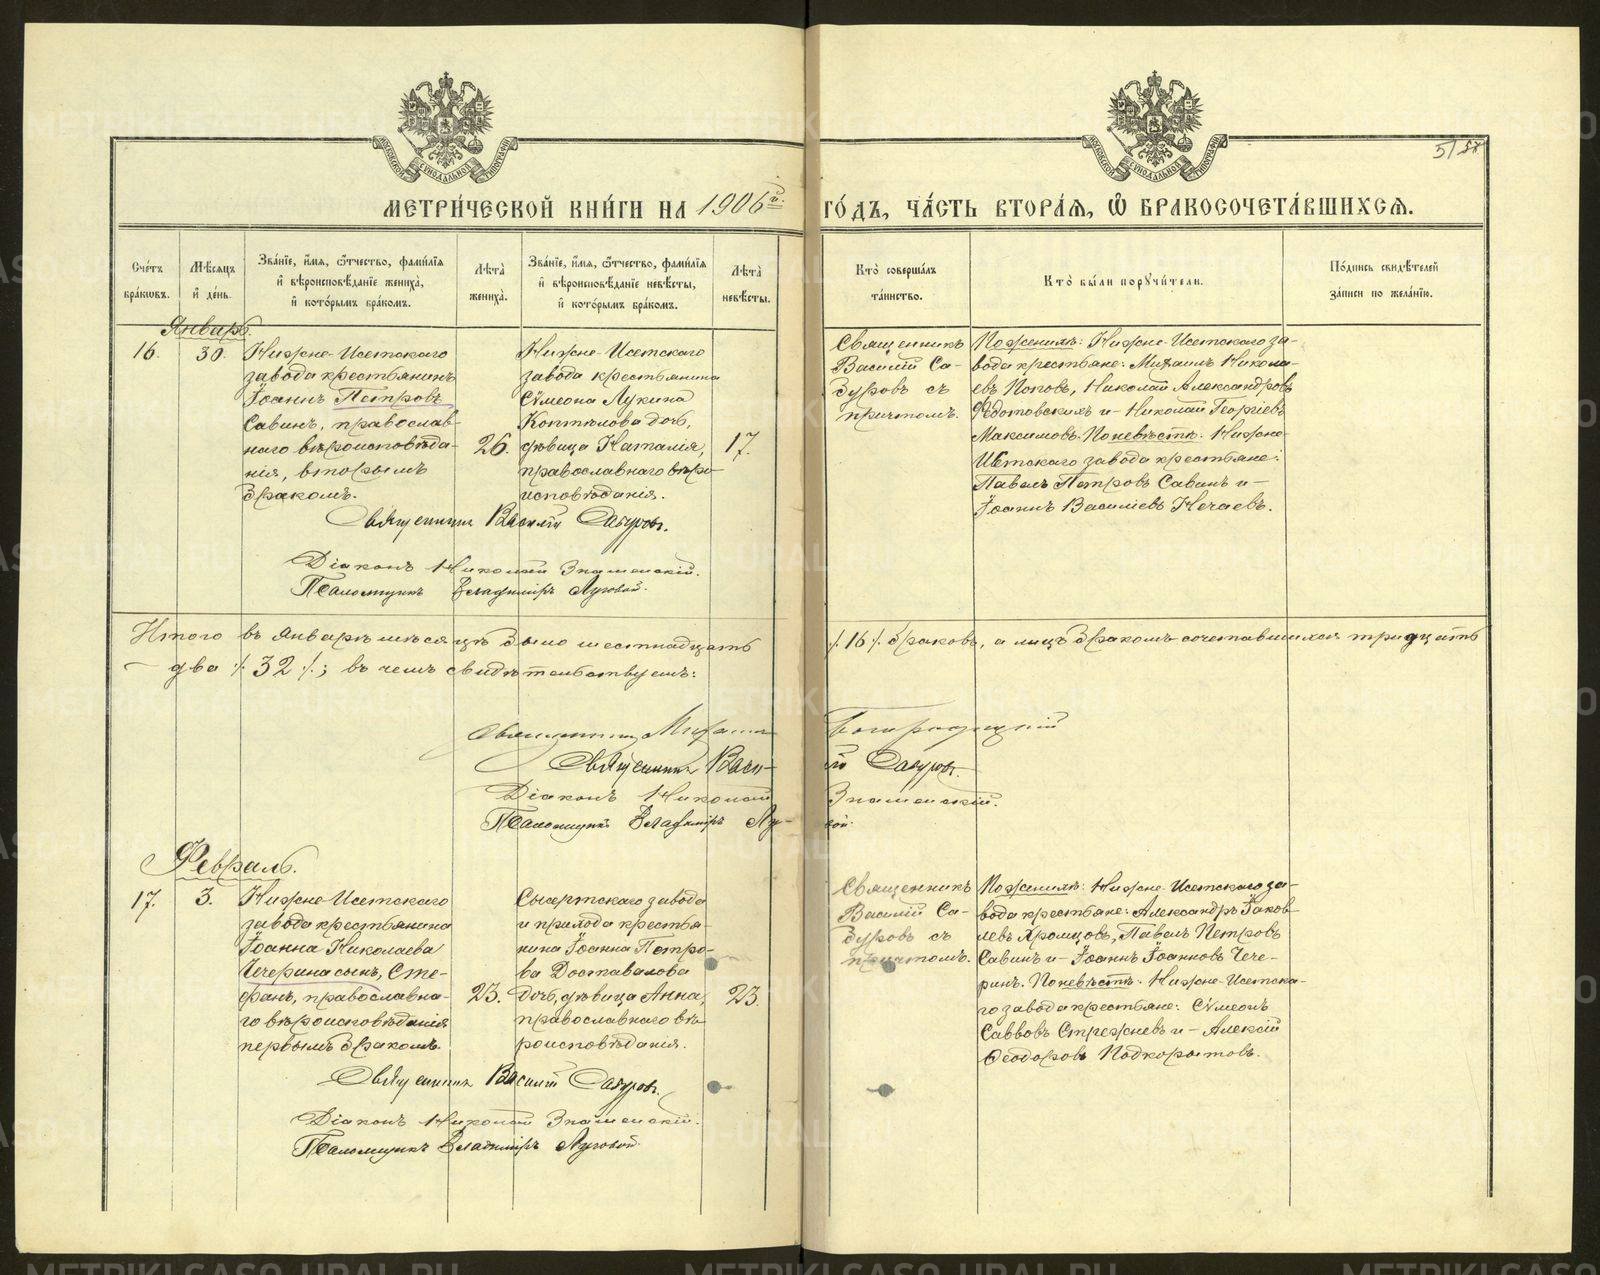 МЕТРИ́ЧЕСКОЙ КНИ́ГИ НА 1906й. ГО́ДЪ, ЧА́СТЬ ВТОРА́Я, Ѡ БРАКОСОЧЕТА́ВШИХСЯ.
5/
Сче́тъ бра́кѡвъ.
Мѣ́сяцъ и҆ де́нь.
Зва́нїе, и҆́мя, ѻ҆́тчество, фами́лїя и҆ вѣроисповѣ́данїе жениха̀, и҆ кото́рымъ бра́комъ.
Лѣ́та̀ жениха̀.
Зва́нїе, и҆́мя, ѻ҆́тчество, фами́лїя и҆ вѣроисповѣ́данїе невѣ́сты, и҆ кото́рымъ бра́комъ.
Лѣ́та̀ невѣ́сты.
Кто̀ соверша́лъ та́инство.
Кто̀ бы́ли порꙋчи́тели.
По́дпись свидѣ́телей за́писи по жела́нїю.
Январь.
16.
30.
Нижне-Исетскаго
завода крестьянинъ
Іоаннъ Петровъ
Савинъ, православ-
наго вѣроисповѣда-
нія, вторымъ
бракомъ.
26.
Нижне-Исетскаго
завода крестьянина
Сѵмеона Лукина
Коптѣлова дочь,
дѣвица Наталія,
православнаго вѣро-
исповѣданія.
17.
Священникъ
Василій Са-
буровъ съ
причтомъ.
По женихѣ: Нижне-Исетскаго за-
вода крестьяне: Михаилъ Никола-
евъ Поповъ, Николай Александровъ
Федотовскихъ и Николай Георгіевъ
Максимовъ. По невѣстѣ: Нижне-
Исетскаго завода крестьяне:
Павелъ Петровъ Савинъ и
Іоаннъ Василіевъ Нечаевъ.
Священникъ Василій Сабуровъ.
Діаконъ Николай Знаменскій.
Псаломщикъ Владиміръ Луговой.
Итого въ январѣ мѣсяцѣ было шестнадцать ./. 16 ./. браковъ, а лицъ бракомъ сочетавшихся тридцать
два ./. 32 ./.; въ чемъ свидѣтельствуемъ:
Священникъ Михаилъ Богородицкій
Священникъ Василій Сабуровъ.
Діаконъ Николай Знаменскій.
Псаломщикъ Владиміръ Луговой.
Февраль.
17.
3.
Нижне-Исетскаго
завода крестьянина
Іоанна Николаева
Чечерина сынъ, Сте-
фанъ, православна-
го вѣроисповѣданія
первымъ бракомъ.
23.
Сысертскаго завода
и прихода крестья-
нина Іоанна Петро-
ва Доставалова
дочь, дѣвица Анна,
православнаго вѣ-
роисповѣданія.
23.
Священникъ
Василій Са-
буровъ съ
причтомъ.
По женихѣ: Нижне-Исетскаго за-
вода крестьяне: Александръ Іаков-
левъ Хромцовъ, Павелъ Петровъ
Савинъ и Іоаннъ Іоанновъ Чече-
ринъ. По невѣстѣ: Нижне-Исетска-
го завода крестьяне: Сѵмеонъ
Саввовъ Стрежневъ и Алексій
Ѳеодоровъ Подкорытовъ.
Священникъ Василій Сабуровъ.
Діаконъ Николай Знаменскій.
Псаломщикъ Владиміръ Луговой.